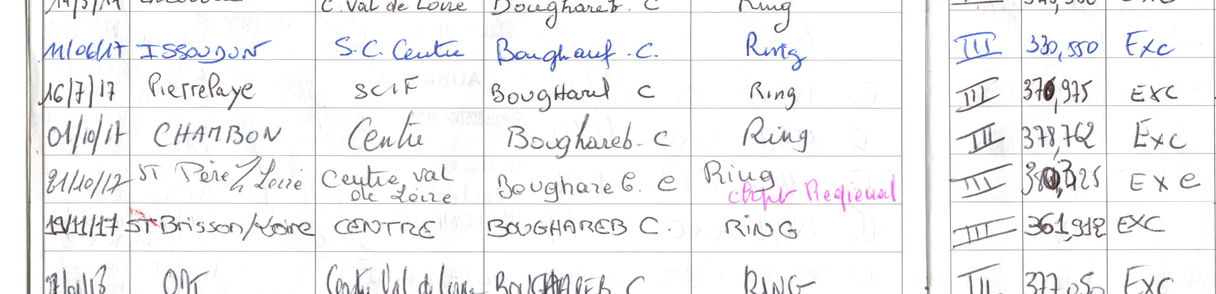 C. Val de Loire Boughareb. C Ring
11/06/17 ISSOUDUN S.C. Centre Boughareb. C. Ring III 330,550 Exc
16/7/17 PierrePaye SCIF Boughareb C Ring III 376,975 EXC
01/10/17 CHAMBON Centre Boughareb. C Ring III 378,762 Exc
21/10/17 ST Père/Loire Centre Val de Loire Boughareb. C Ring III EXC
chpt Regional
19/11/17 ST Brisson/Loire CENTRE BOUGHAREB C. RING III 361,912 EXC
Centre Val de Loire BOUGHAREB C RING III 377,050 Exc